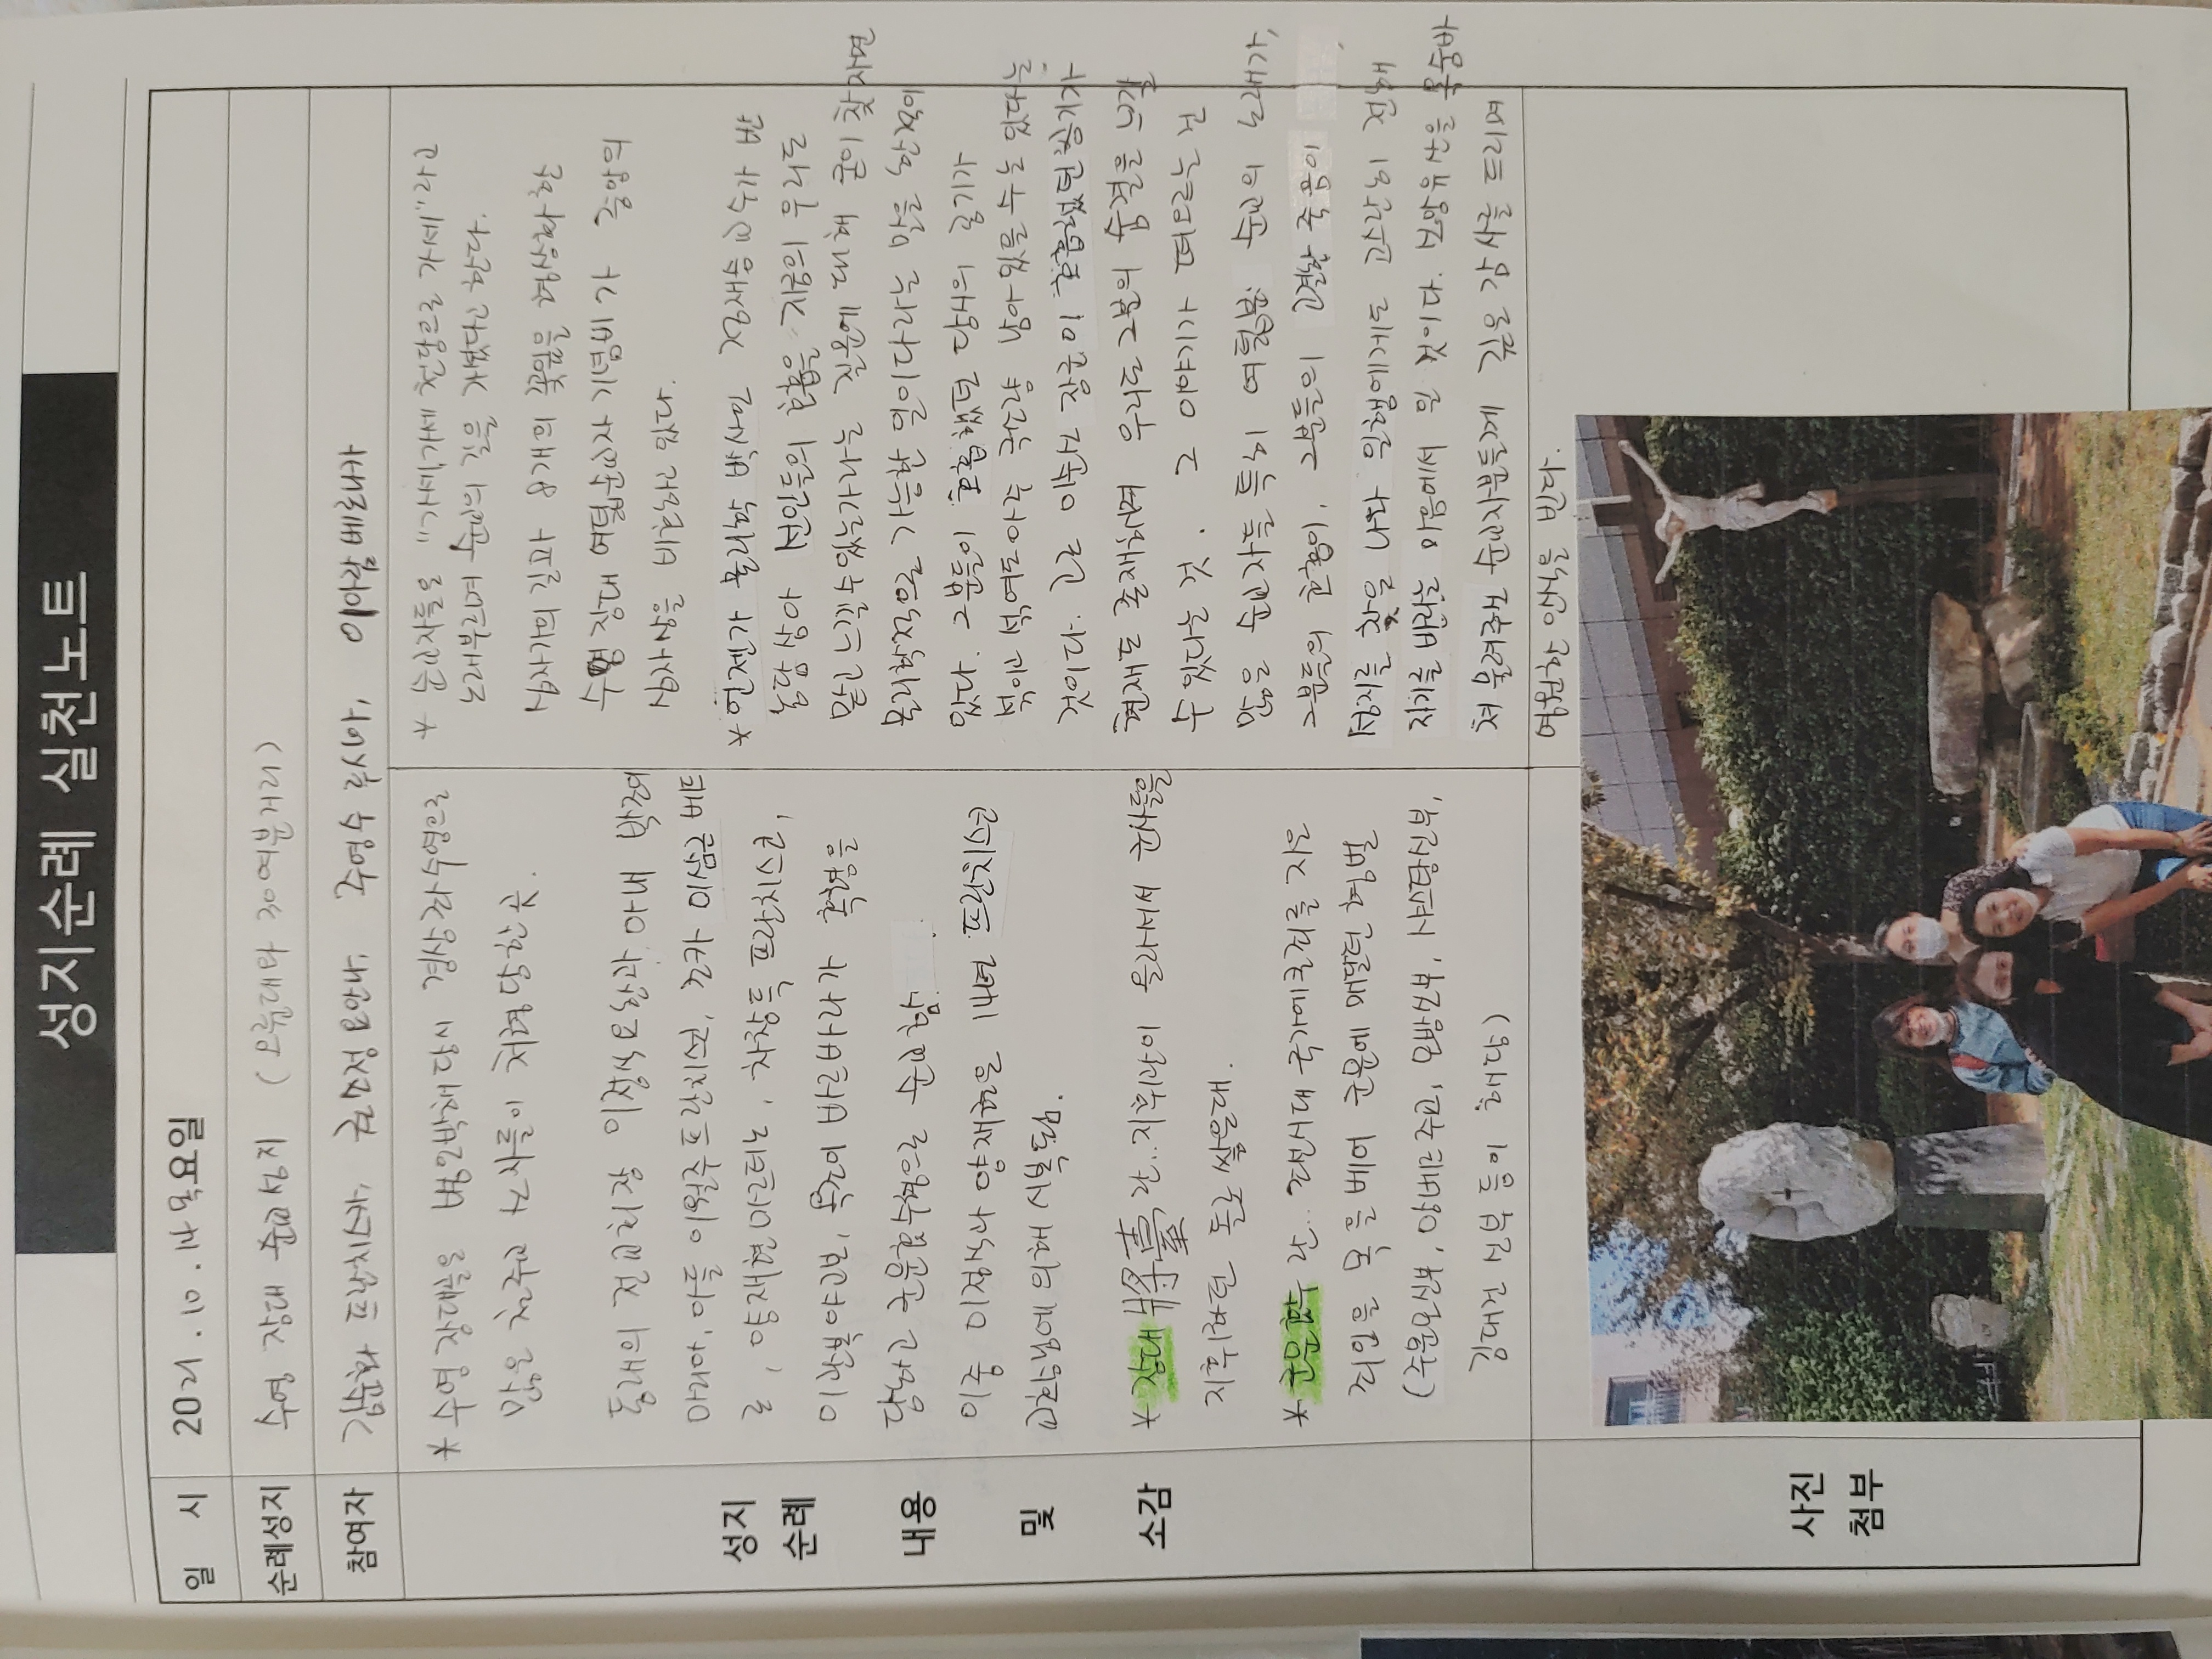 성지순례 실천노트
일 시
2021. 10. 14 목요일
순례성지
수영 장대 순교성지 (오륜대와 30여분거리)
참여자
김순화 프란치스카, 권소정 요안나, 주영수 루시아, 이아람베로니카
성지
순례
내용
및
소감
* 수영 장대골은 병오박해당시 경상좌수영으로
많은 천주교 신자들이 처형당한 곳.
동래의 전교회장 이정식요한과 아내 박조이
마리아, 아들 이월주프란치스코, 조카 이삼근 베드
로, 양재현마르티노, 차장득 프란치스코,
이관복야고보, 옥조이 바르바라가 혹형을
당하고 군문효수형으로 순교함.
이중 이정식과 양재현은 14년 프란치스코
교황님에 의해 시복됨.
* 장대將臺란..지휘관이 올라서서 군사들을
지휘하던 돌로쌓은대.
* 군문효수란.. 조선시대 국가에큰죄를 지은
죄인을 목을베어 군문에 매달던 형벌
(주문모신부, 앙베르주교, 모방신부, 샤스탕신부,
김대건 신부 등이 해당)
* 순교자들은 "가세,가세 천당으로 가세"라고
노래부르며 순교의 길을 가셨다고 한다.
십자가의 길과 8개의 꽃잎을 형상화한
수영장대 여덟순교자 기념비가 중앙의
십자상을 비호하고 있다.
* 언젠가 물리학 박사인 정재승교수가 반
농담삼아 선인들의 호흡을 지금의 우리도
맡고느낄수있는가라는 질문에 대해 굳이찾자면
물리학적으로 가능한 일이다라는 말을 한적이
있다. 그분들이 호흡했던 당시의 공기가
섞이고 섞여도아주 극소량 남아있을수는 있다는
것이다. 고로 이순신 장군이 호흡했던공기가
현재도 존재하며 우리도그분의 숨결을 느낄
수있다는 것. 그 이야기가 떠오르는건
많은 순교자들 특히 여덟분 순교의 노래가,
그분들의 호흡이, 그분들의 고결한 죽음이
성지를 찾은 나와 일행에게도 고스란히 전해
지기를 바라는 마음에서 일 것이다. 신앙유산을 목숨바
쳐 물려주신 순교자분들께 깊은 감사를 드리며
영원한 안식을 빈다.
사진
첨부